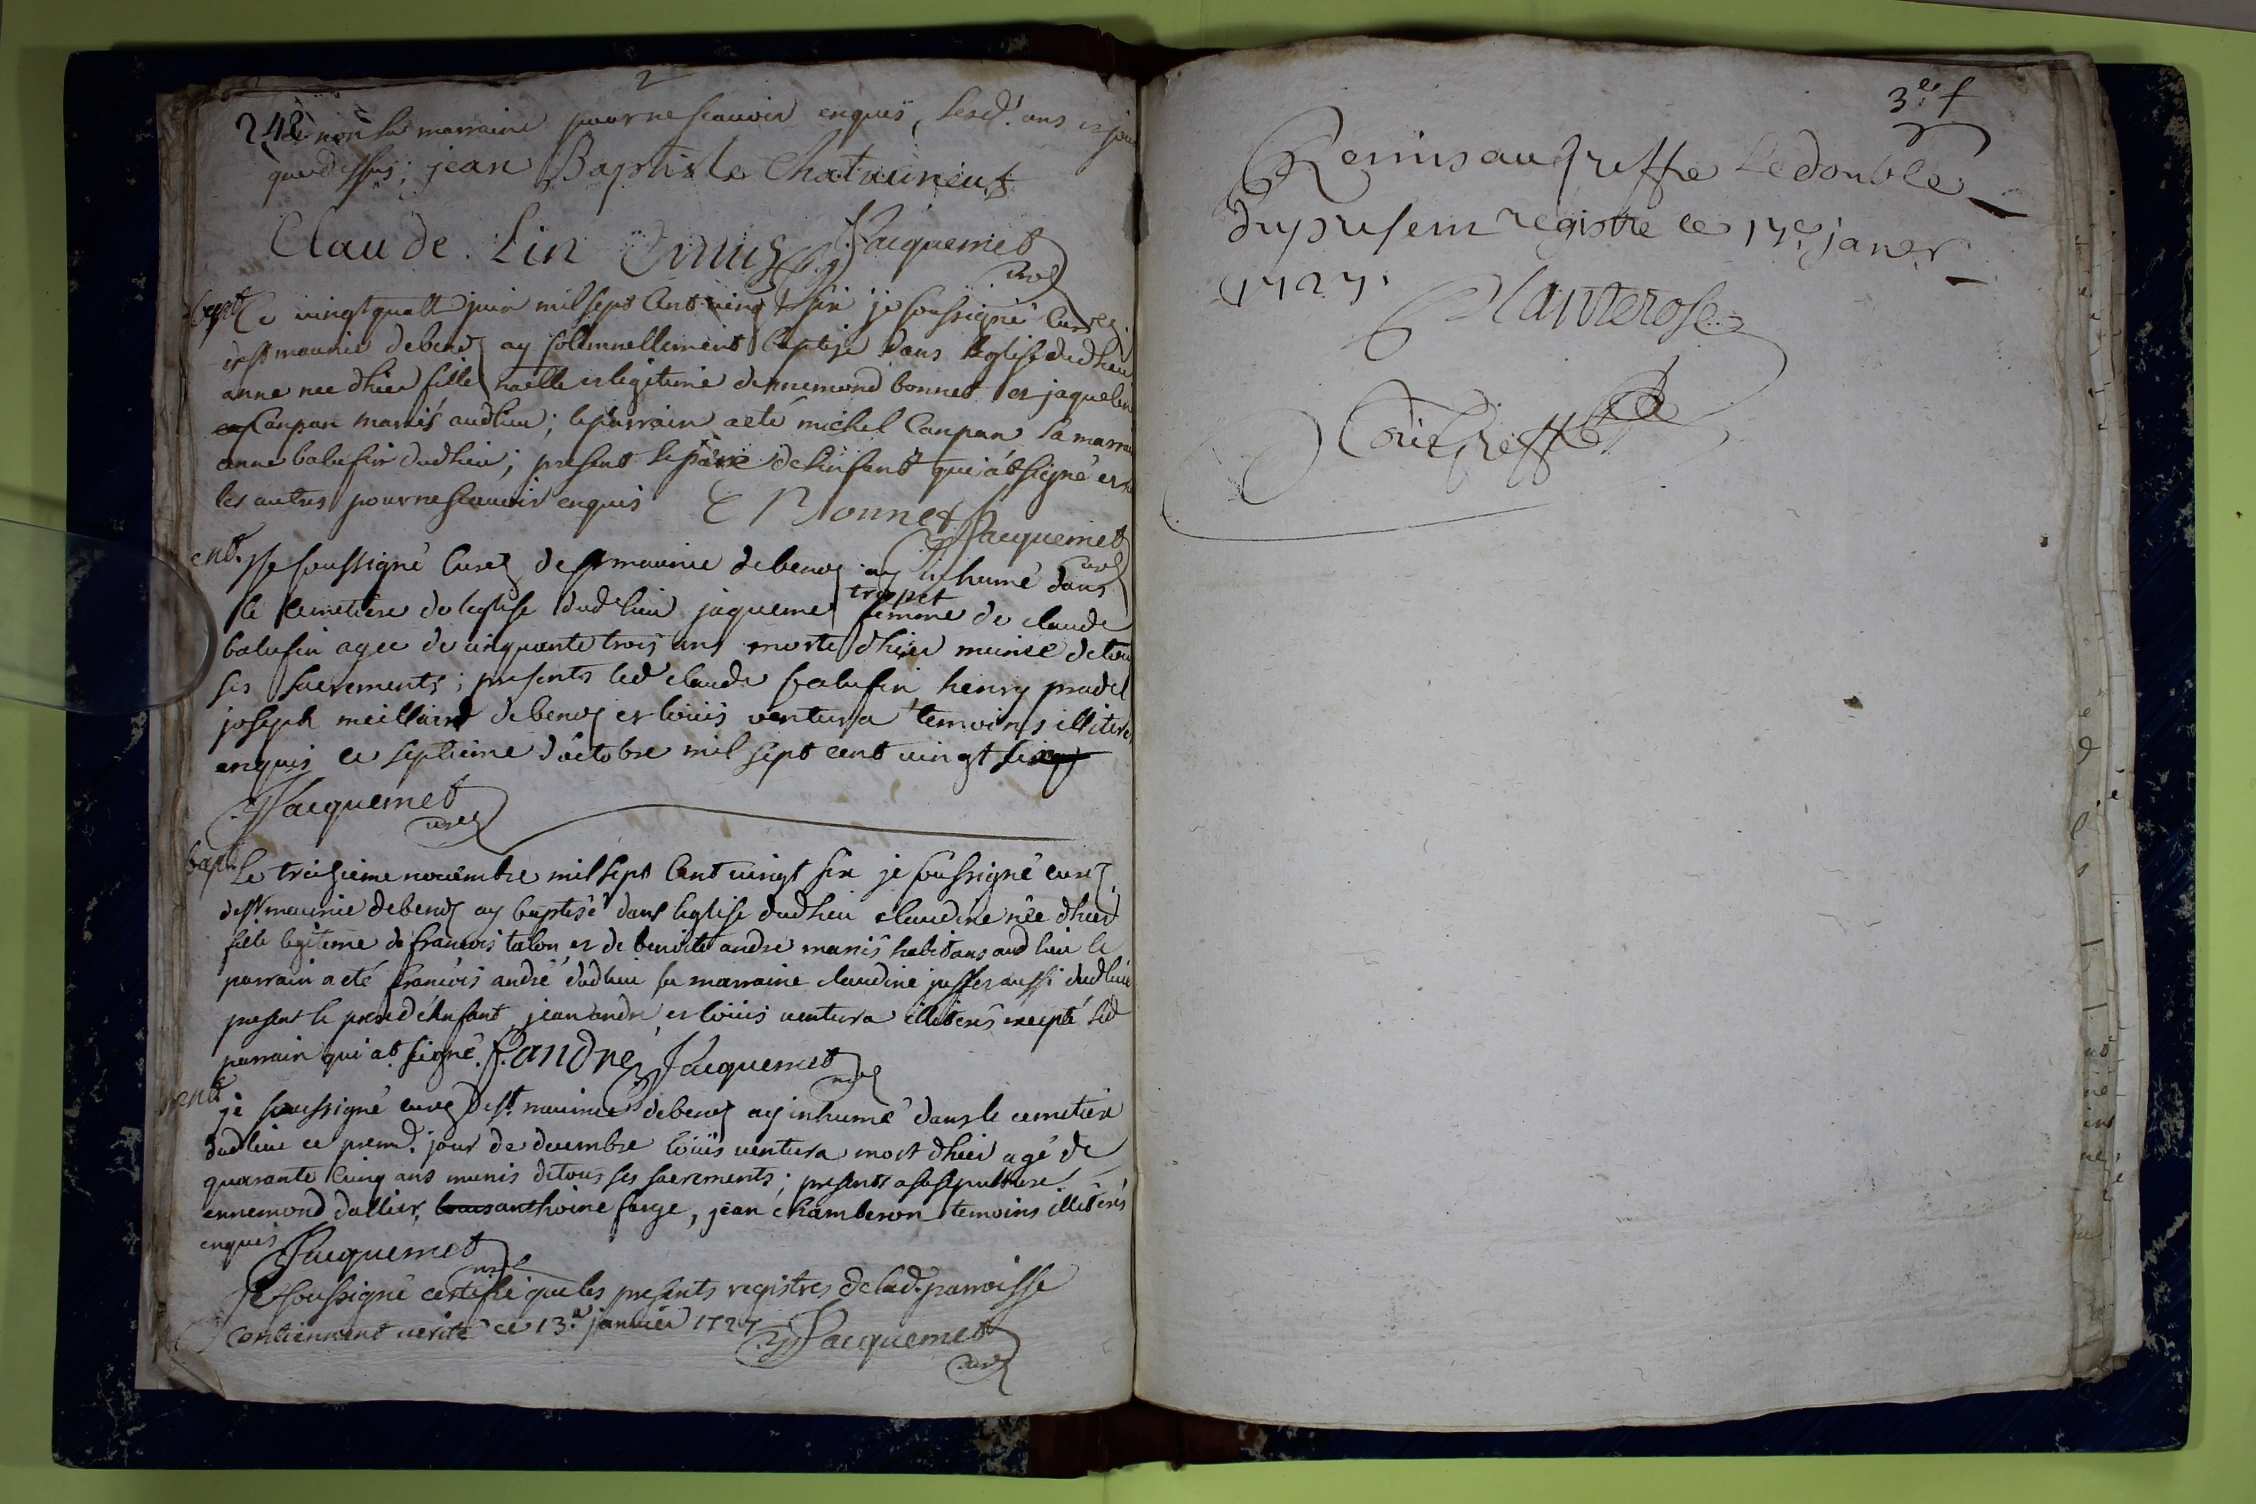 2
248 non la marraine pour ne scauoir enquis, lesd. ans et jour
que dessus; jean Baptiste Chatauneuf
Claude. Lin Jacquemet
curé
bapt Ce uingt quatt juin mil sept Cent uingt & six je soussigné Curé
de st maurice debenoz ay sollemnellement baptisé dans leglise dud lieu
anne née dhier fille nalle et legitime dennemond bonnet et jaqueline
Canpan mariés aud lieu; le parrain a eté michel Canpan sa marrai
anne balufin dud lieu; present le pere de lenfant qui at signé et n
les autres pour ne scauoir enquis E Bonnet
Jacquemet
curé
ent. Je soussigné Curé de st maurice de benoz ay inhumé dans
le cemetiere de leglise dud lieu jaqueme tropet femme de claude
balufin agee de cinquante trois ans morte dhier munie de tou
ses sacrements; presents led claude balufin henry pradel
joseph meillard de benoz et loüis ventura temoins illiterés
enquis ce septieme doctobre mil sept cent uingt six
Jacquemet
curé
bapt Le treizieme nouembre mil sept Cent uingt six je soussigné curé
de st maurice debenoz ay baptisé dans leglise dud lieu claudine née dhier
fille legitime de francois talon et de benoite andre mariés habitans aud lieu le
parrain a eté francois andré dud lieu sa marraine claudine juffet aussi dud lieu
present le pere d'enfant, jean andré et loüis uentura illiterés excepté led
parrain qui at signé. f. andré Jacquemet
curé
ent je soussigné curé de st. maurice debenoz ay inhumé dans le cemetiere
dud lieu ce premr. jour de decembre loüis uentura mort dhier agé de
quarante Cinq ans munis de tous ses sacrements; presents a sa sepulture
ennemond dallier, anthoine farge, jean chamberon temoins illiterés
enquis
Jacquemet
curé
Je soussigné certifie que les presents registres de lad. parroisse
contiennent uerité ce 13e januier 1727
Jacquemet
curé
3e f
Remis au greffe Le double
du present registre ce 17e janvr
1727.
Chanterose
Com Greffe